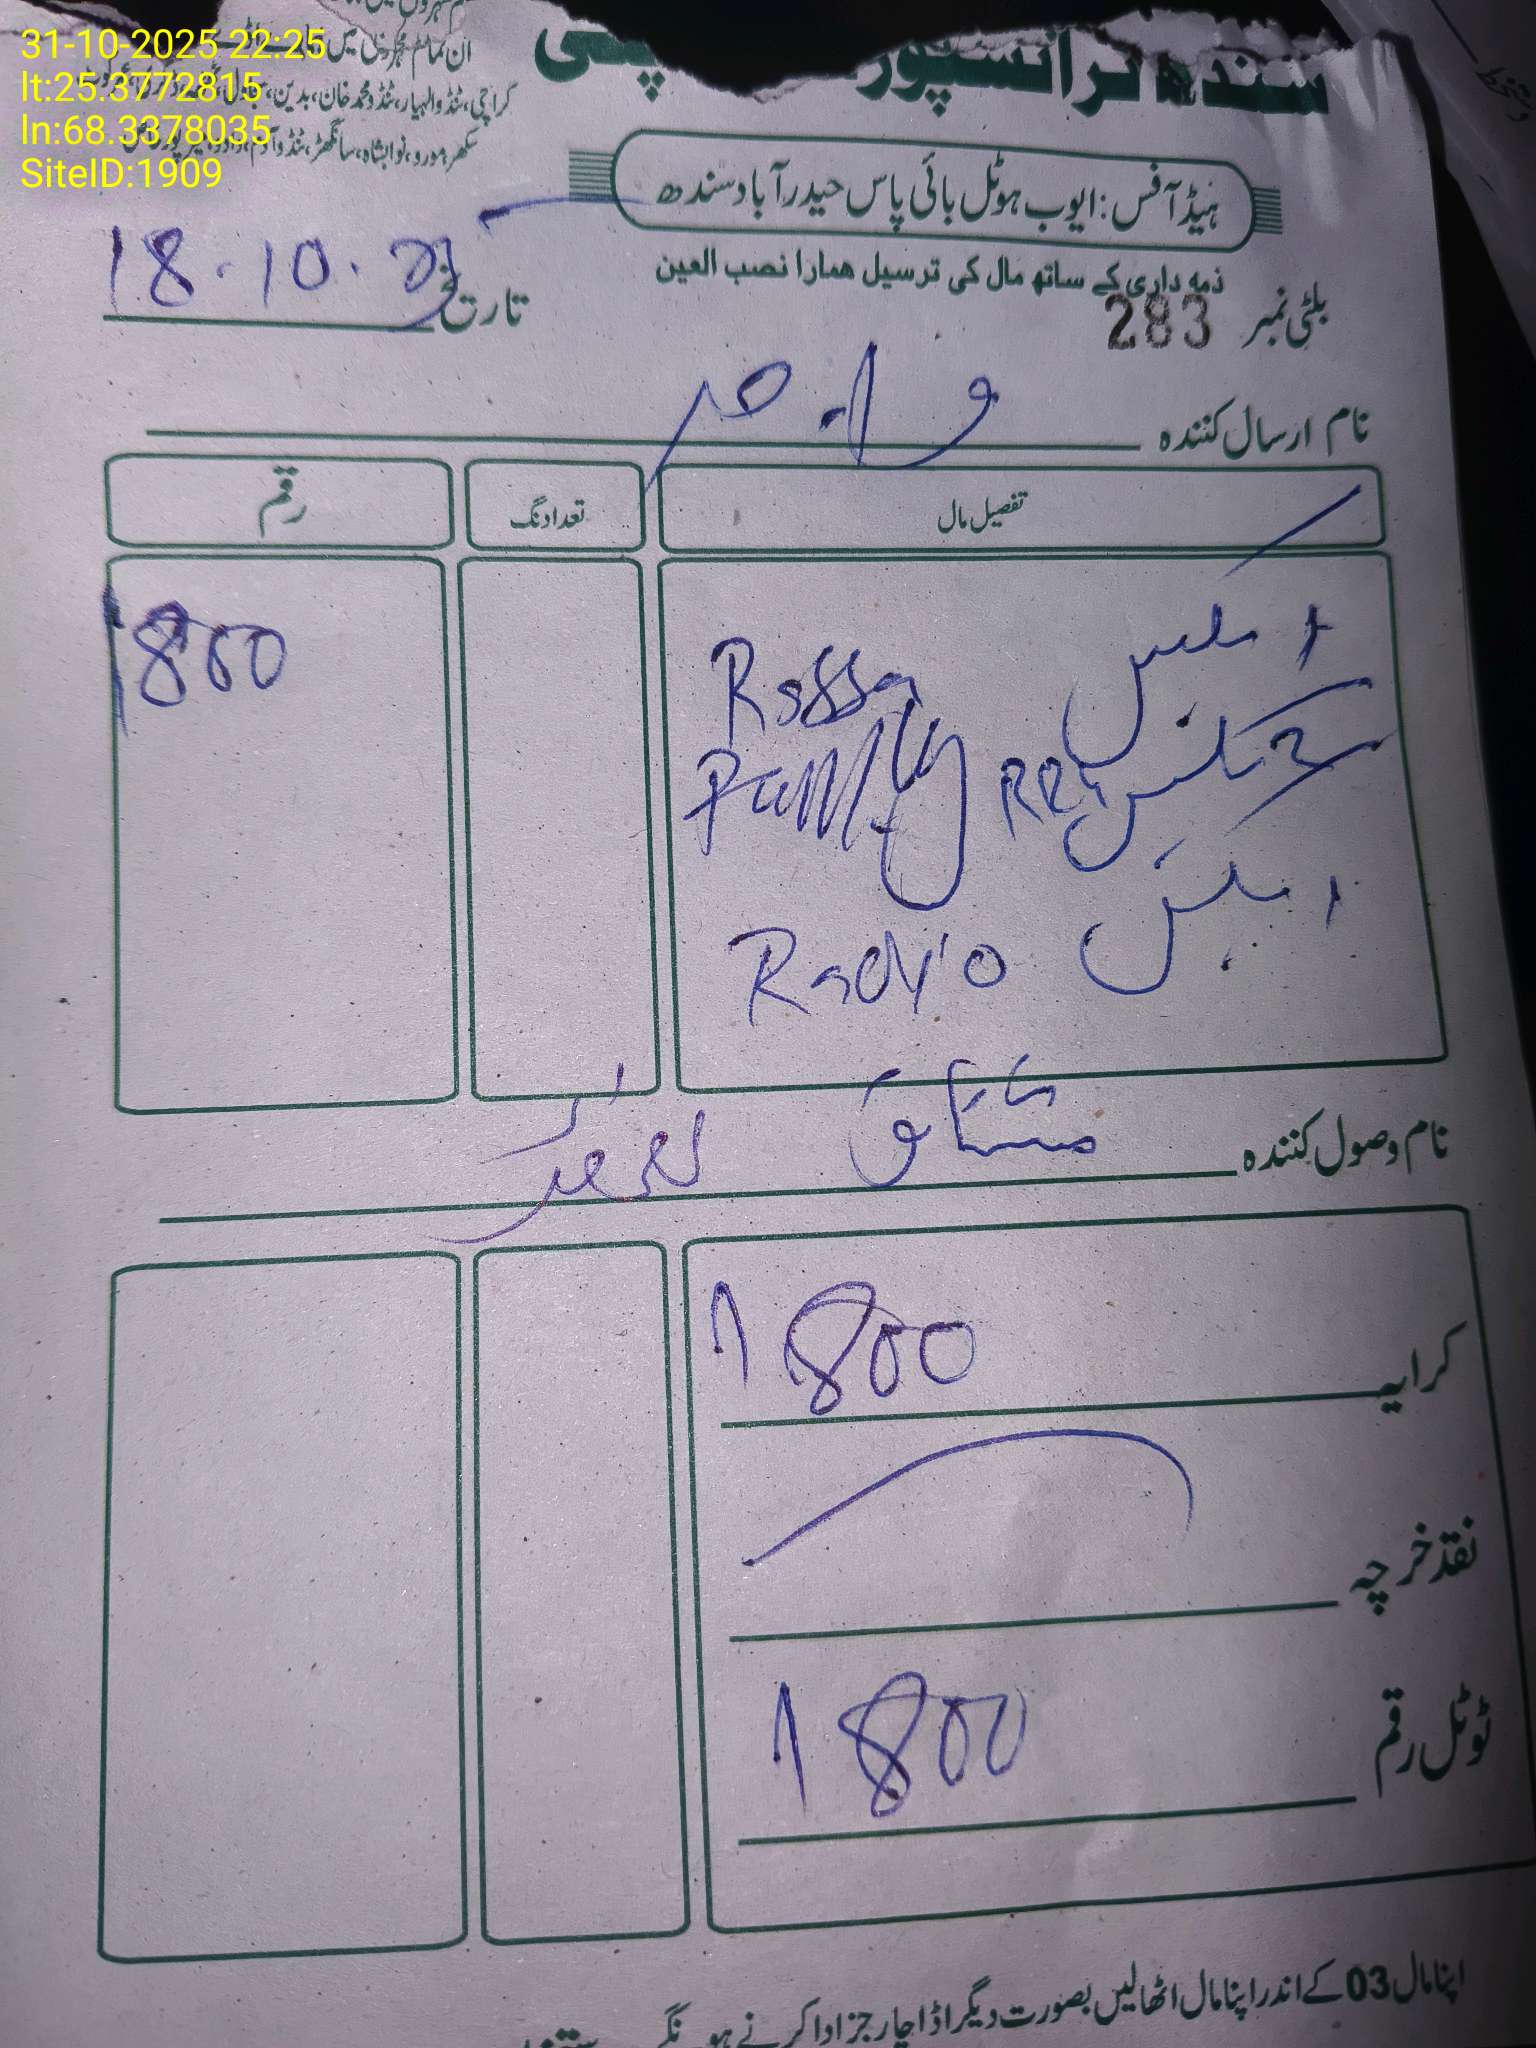 31-10-2025 22:25
lt:25.3772815
ln:68.3378035
SiteID:1909
ان تمام شہروں میں
کراچی، ٹنڈوالہیار، ٹنڈومحمدخان، بدین،
سکھر، مورو، نوابشاہ، سانگھڑ، ٹنڈوآدم، دادو، میرپورخاص
سندھ ٹرانسپورٹ کمپنی
ہیڈ آفس: ایوب ہوٹل بائی پاس حیدرآباد سندھ
ذمہ داری کے ساتھ مال کی ترسیل ہمارا نصب العین
بلٹی نمبر 283
تاریخ 18.10.
نام ارسال کنندہ
تفصیل مال تعداد نگ رقم
1800
RRA
Radyo
نام وصول کنندہ مشتاق
کرایہ 1800
نقد خرچہ
ٹوٹل رقم 1800
اپنا مال 03 کے اندر اپنا مال اٹھالیں بصورت دیگر اڈا چارجز ادا کرنے ہونگے